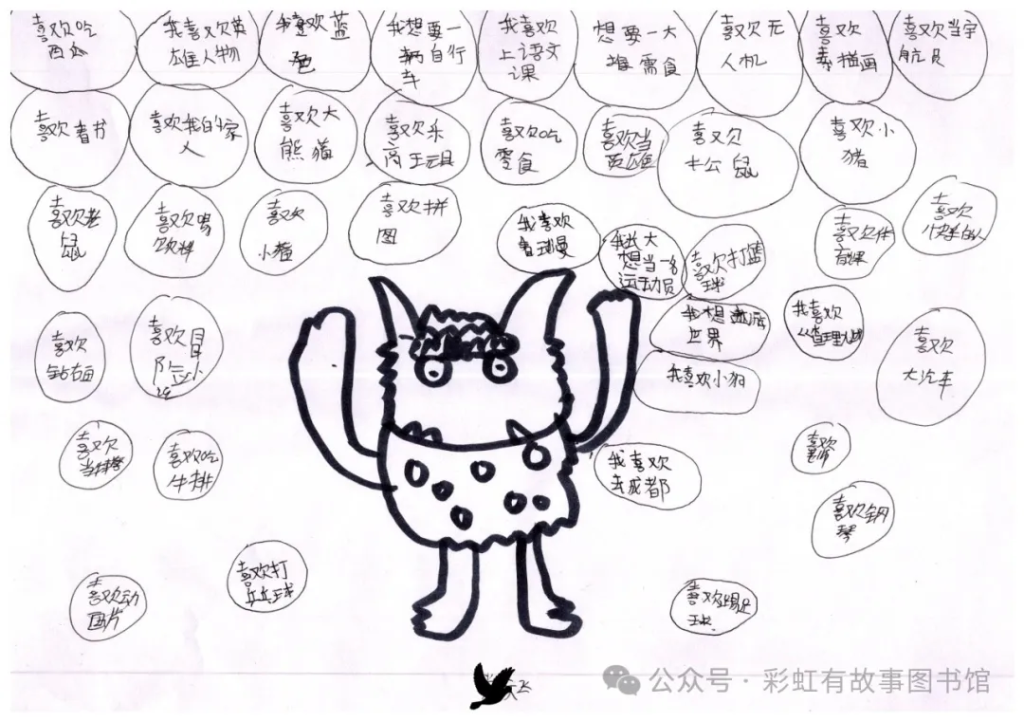 喜欢吃
西瓜
我喜欢英
雄人物
我喜欢蓝
色
我想要一
辆自行
车
我喜欢
上语文
课
想要一大
堆零食
喜欢无
人机
喜欢
素描画
喜欢当宇
航员
喜欢看书
喜欢我的家
人
喜欢大
熊猫
喜欢乐
高玩具
喜欢吃
零食
喜欢当
英雄
喜欢
大公鼠
喜欢小
猪
喜欢老
鼠
喜欢
喜欢
小猪
喜欢拼
图
我喜欢
鲁班曼
我长大
想当一名
运动员
喜欢打篮
球
喜欢体
育课
喜欢
喜欢
钻石画
喜欢冒
险小
我想
世界
我喜欢
喜欢
大汽车
我喜欢小狗
喜欢
当特警
喜欢吃
牛排
我喜欢
去成都
喜欢
喜欢钢
琴
喜欢动
画片
喜欢打
乒乓球
喜欢踢足
球
飞
公众号·彩虹有故事图书馆